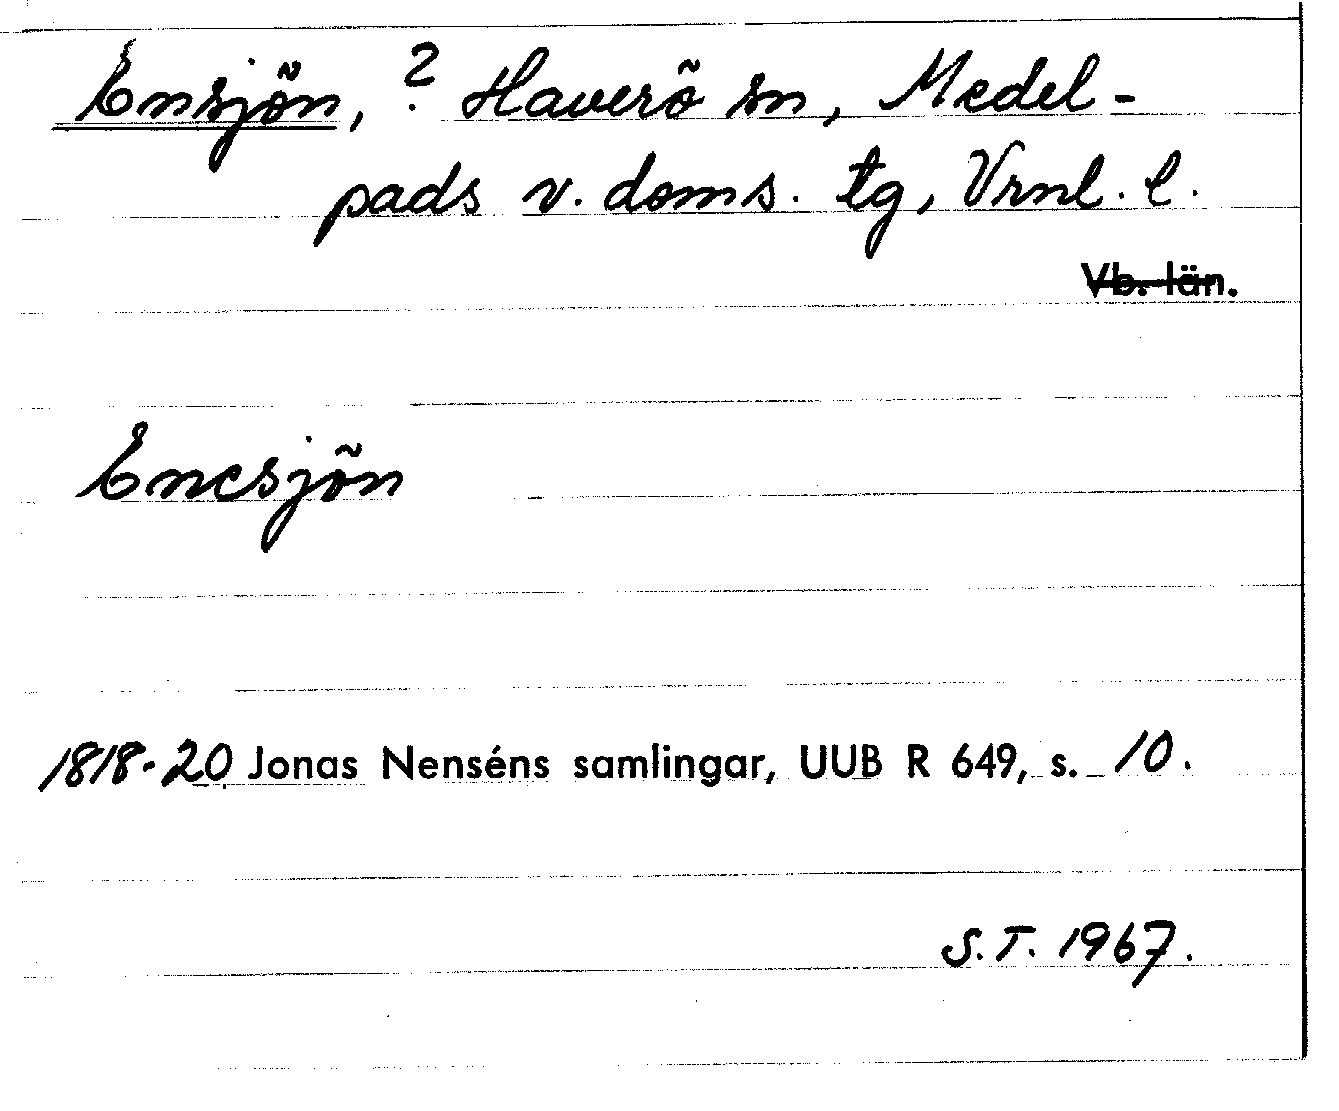 Ensjön, ? Haverö sn, Medel-
pads v. doms. tg, Vrnl. l.
Vb. län.
Encsjön
1818-20 Jonas Nenséns samlingar, UUB R 649, s. 10.
S.T. 1967.